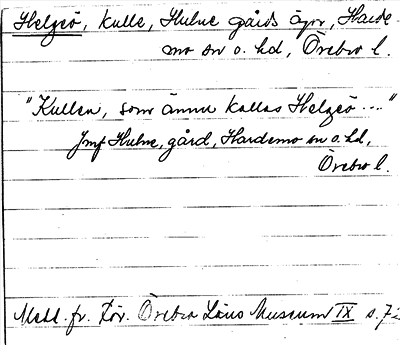 Helgeö, kulle, Hulne gårds ägor, Harde
mo sn o. hd, Örebro l.
"Kullen, som ännu kallas Helgeö ..."
Jmf Hulne, gård, Hardemo sn o. hd,
Örebro l.
Medd. fr. För. Örebro Läns Museum IX s. 72